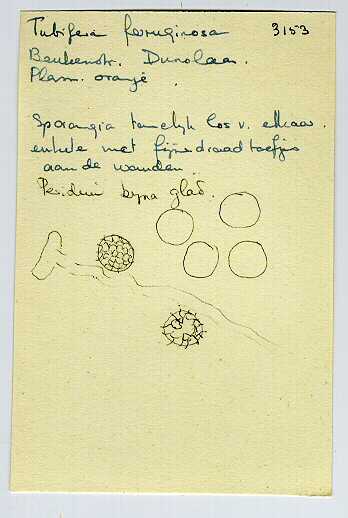 Tubifera ferruginosa 3153
Beukenstr. Dunolaan.
Plasm. oranje.
Sporangia tamelijk los v. elkaar.
enkele met fijne draad toefjes
aan de wanden.
Peridium byna glad.